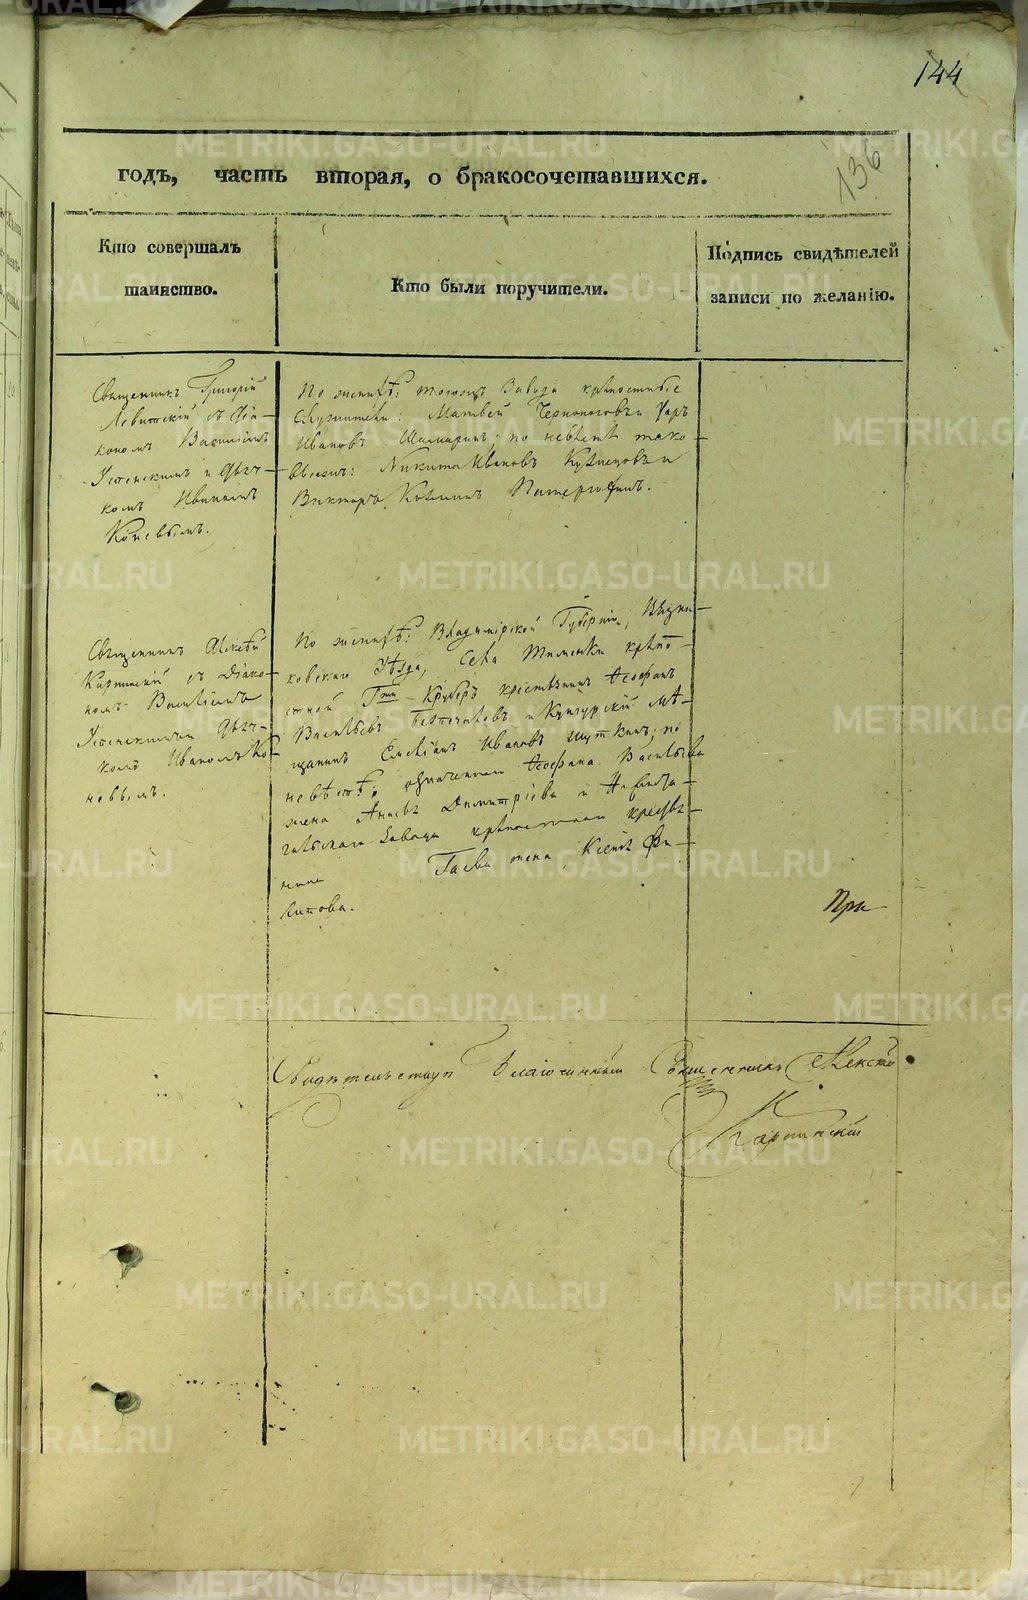 144
136
годъ, часть вторая, о бракосочетавшихся.
Кто совершалъ
таинство.
Кто были поручители.
Подпись свидѣтелей
записи по желанію.
Священникъ Григорій
Левитскій съ Діа-
кономъ Василіемъ
Успенскимъ и Дьяч-
комъ Иваномъ
Коневымъ.
По женихѣ: тогожъ Завода крѣпостные
служители: Матвей
Ивановъ по невѣстѣ тако-
выежъ: Никита Ивановъ Кузнецовъ и
Викторъ Козминъ
Священникъ Алексѣй
Карпинскій съ Діако-
номъ Василіемъ
Успенскимъ и Дьяч-
комъ Иваномъ Ко-
невымъ.
По женихѣ: Владимірской Губерніи, Вязни-
ковскаго Уѣзда, Села крѣпо-
стной Гжи крестьянинъ Ѳеофанъ
Васильевъ и Кунгурскій мѣ-
щанинъ Емельянъ Ивановъ по
невѣстѣ: означеннаго Ѳеофана Васильева
жена Анисья Димитріева и
Завода крѣпостнаго
жена Ксенія Фи-
липова.
При
Свидѣтельствуя Благочинный Священникъ Алексѣй
Карпинскій
METRIKI.GASO-URAL.RU